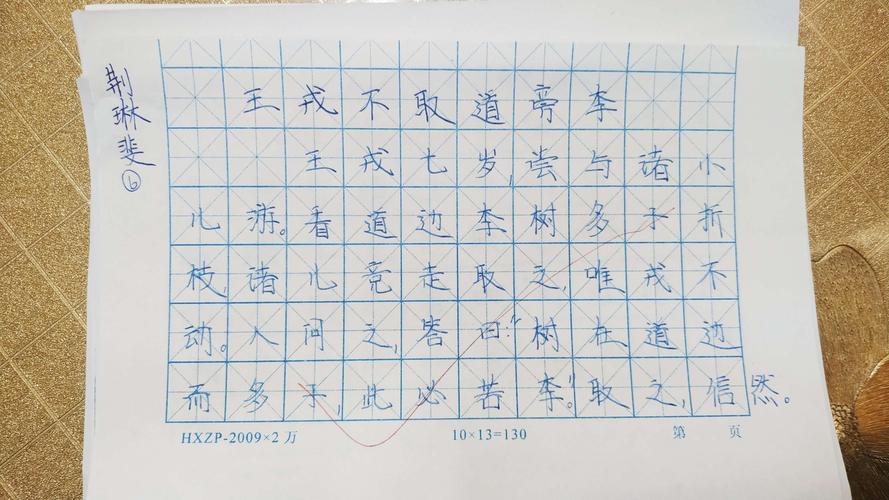 荆琳斐⑥
王戎不取道旁李
王戎七岁,尝与诸小
儿游。看道边李树多子折
枝,诸儿竞走取之,唯戎不
动。人问之,答曰:“树在道边
而多子,此必苦李。”取之,信然。
HXZP-2009×2万 10×13=130 第 页